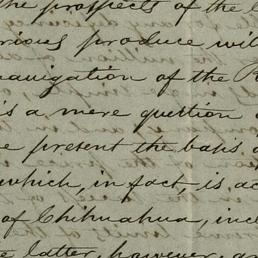 the prospects of the
produce will
navigation of the R
is a mere question
present the basis
which, in fact, is ac
of Chihuahua, incl
latter, however, an